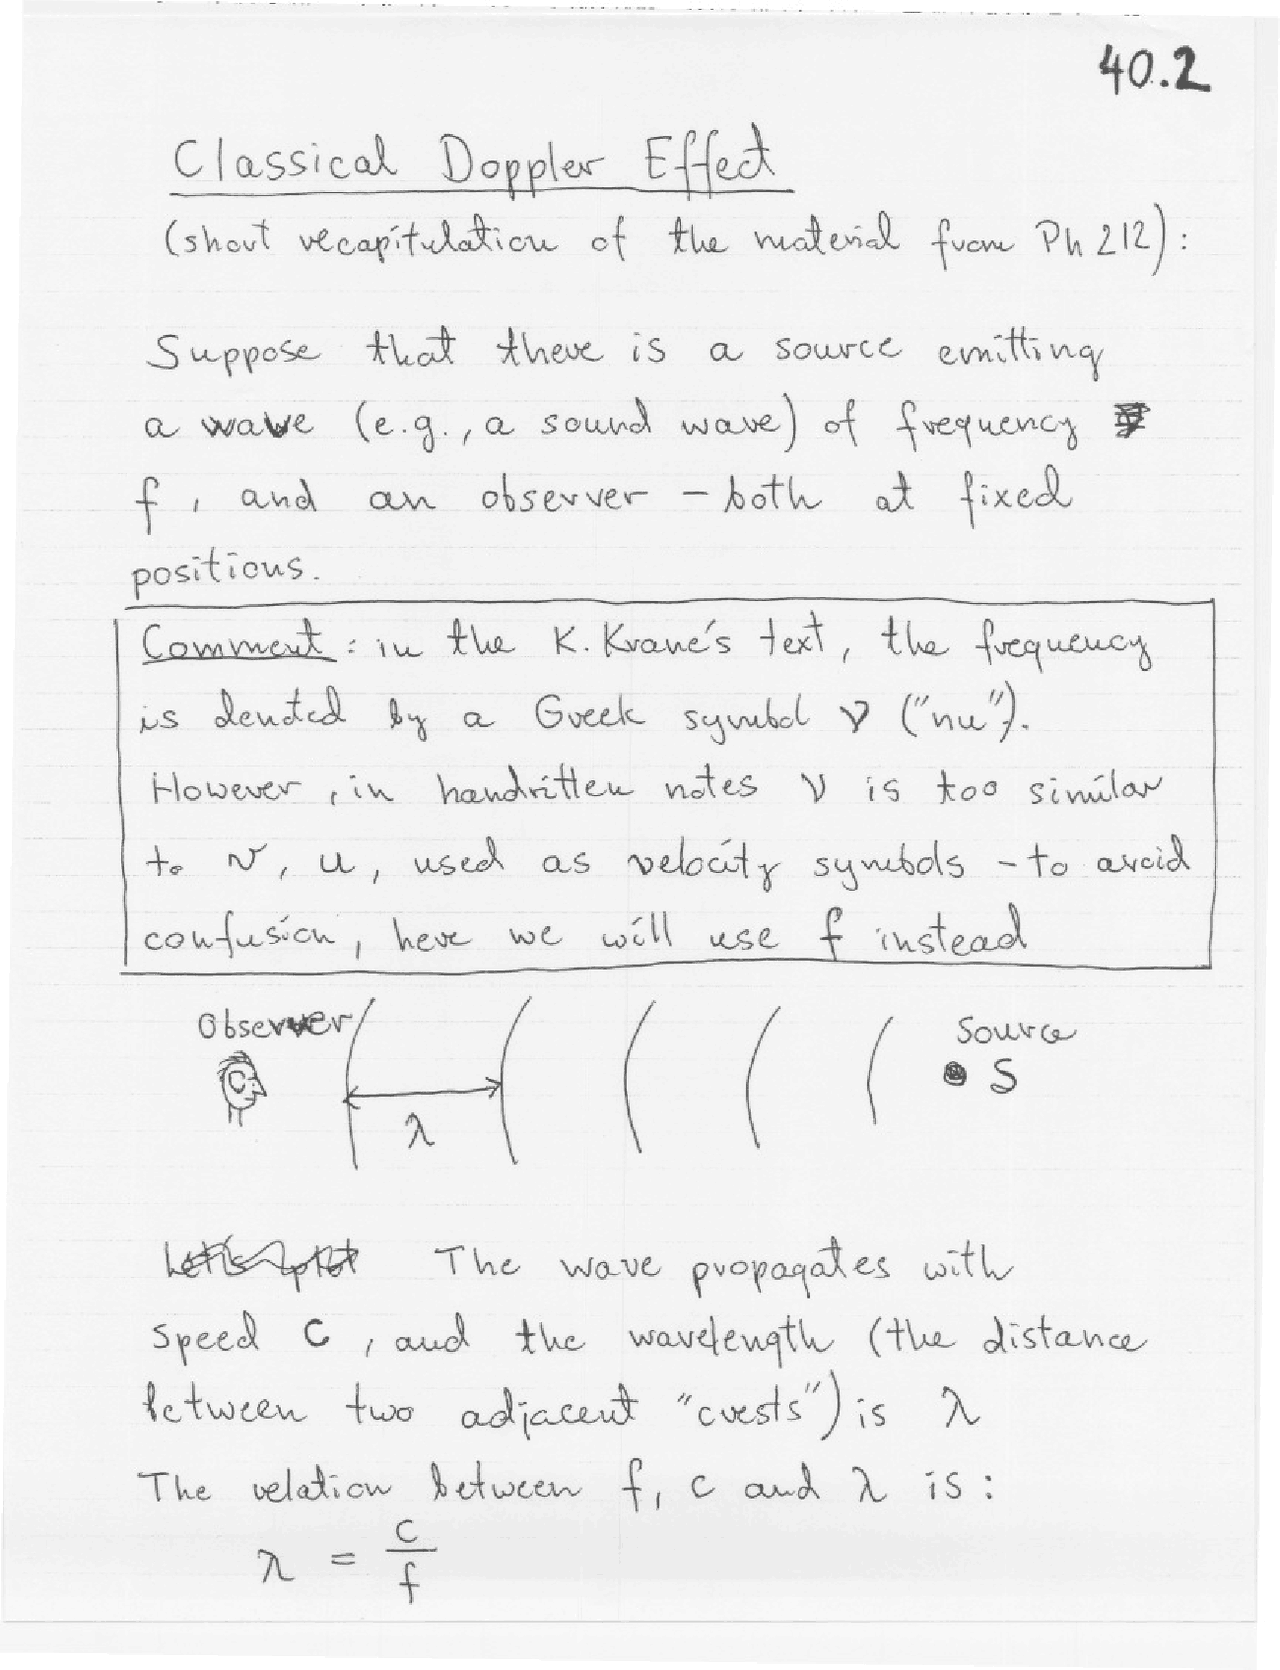 40.2
Classical Doppler Effect
(short recapitulation of the material from Ph 212):
Suppose that there is a source emitting
a wave (e.g., a sound wave) of frequency
f, and an observer – both at fixed
positions.
Comment: in the K. Krane's text, the frequency
is denoted by a Greek symbol ν ("nu").
However, in handritten notes ν is too similar
to v, u, used as velocity symbols – to avoid
confusion, here we will use f instead
Observer
Source
S
λ
Let's plot The wave propagates with
speed c, and the wavelength (the distance
between two adjacent "crests") is λ
The relation between f, c and λ is:
λ = c/f